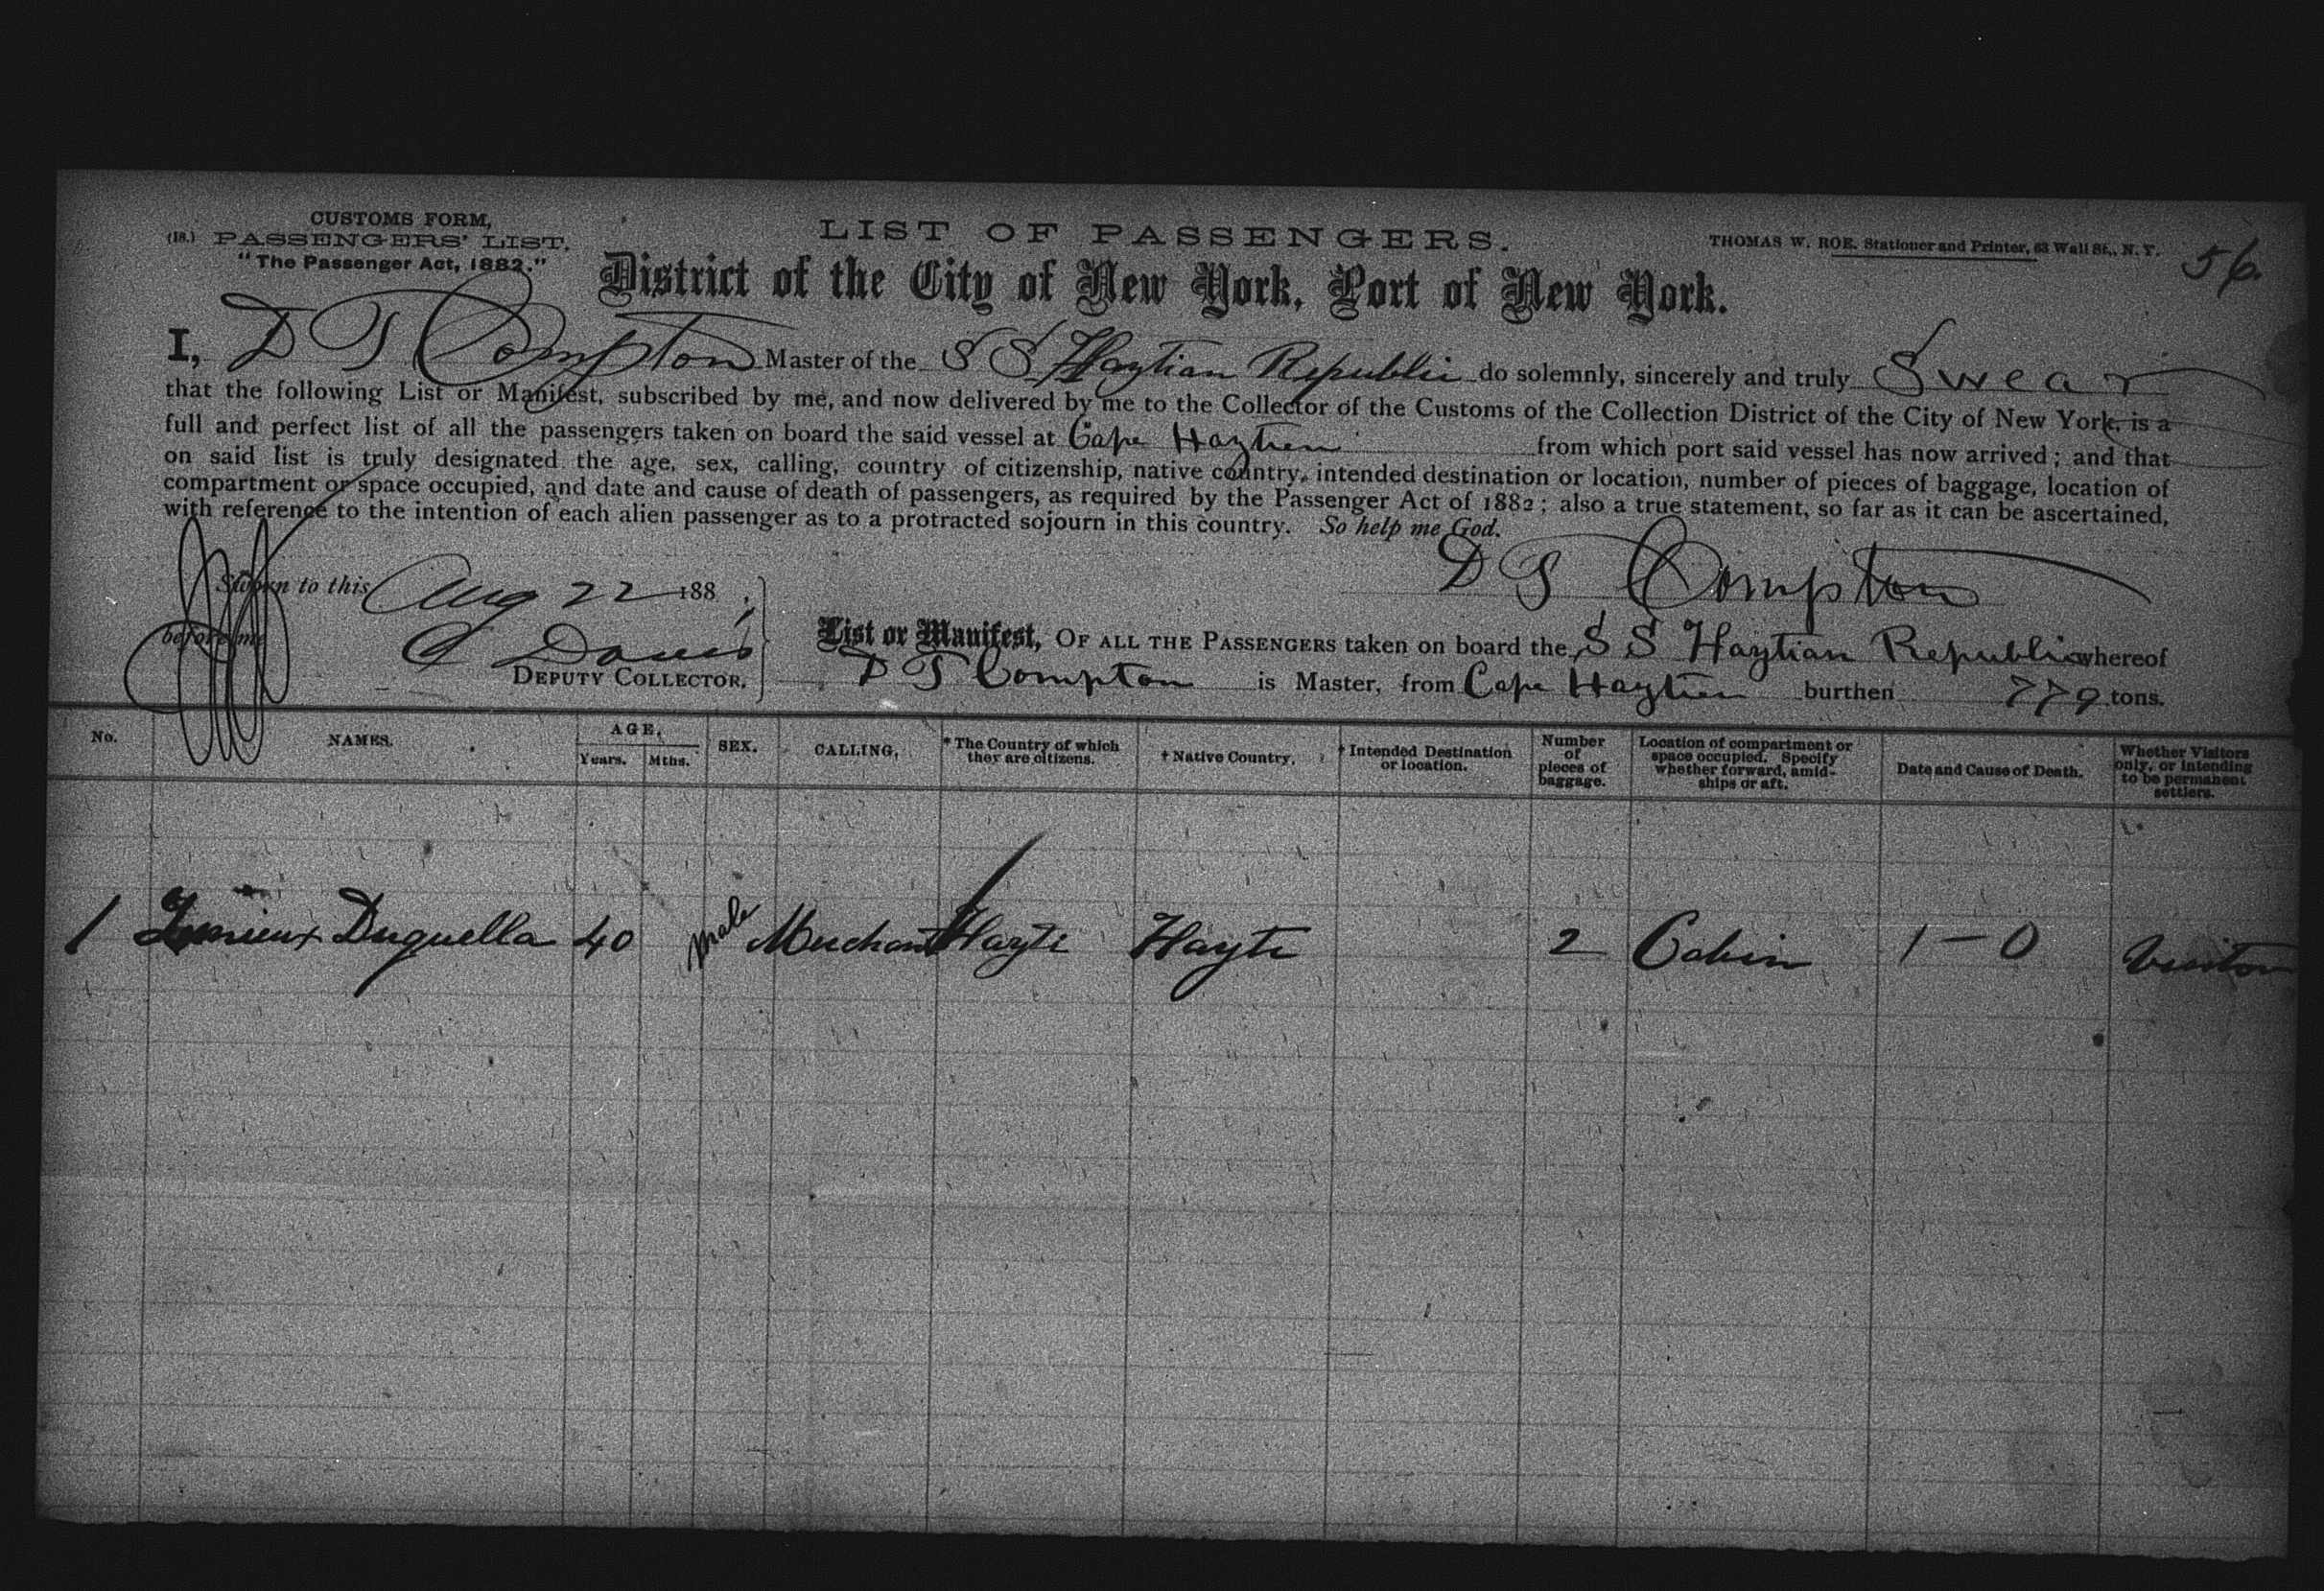 CUSTOMS FORM,
(18.) PASSENGERS' LIST.
"The Passenger Act, 1882."
LIST OF PASSENGERS.
THOMAS W. ROE, Stationer and Printer, 63 Wall St., N. Y.
56
District of the City of New York, Port of New York.
I, D T Compton Master of the S S Haytian Republic do solemnly, sincerely and truly Swear
that the following List or Manifest, subscribed by me, and now delivered by me to the Collector of the Customs of the Collection District of the City of New York, is a
full and perfect list of all the passengers taken on board the said vessel at Cape Haytien from which port said vessel has now arrived; and that
on said list is truly designated the age, sex, calling, country of citizenship, native country, intended destination or location, number of pieces of baggage, location of
compartment or space occupied, and date and cause of death of passengers, as required by the Passenger Act of 1882; also a true statement, so far as it can be ascertained,
with reference to the intention of each alien passenger as to a protracted sojourn in this country. So help me God.
D T Compton
Sworn to this Aug 22 188
before me
C Davis
DEPUTY COLLECTOR.
List or Manifest, OF ALL THE PASSENGERS taken on board the S S Haytian Republic whereof
D T Compton is Master, from Cape Haytien burthen 779 tons.
No. NAMES. AGE. Years. Mths. SEX. CALLING. * The Country of which they are citizens. † Native Country. † Intended Destination or location. Number of pieces of baggage. Location of compartment or space occupied. Specify whether forward, amidships or aft. Date and Cause of Death. Whether Visitors only, or intending to be permanent settlers.
1 Duquella 40 Male Merchant Hayti Hayti 2 Cabin 1 - 0 Visitor